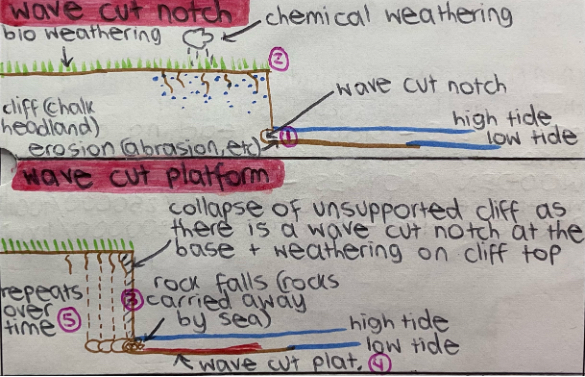 wave cut notch
chemical weathering
bio weathering
②
wave cut notch
cliff (chalk
headland)
high tide
low tide
erosion (abrasion, etc)
①
wave cut platform
collapse of unsupported cliff as
there is a wave cut notch at the
base + weathering on cliff top
repeats
over
time ⑤
③
rock falls (rocks
carried away
by sea)
high tide
low tide
wave cut plat. ④